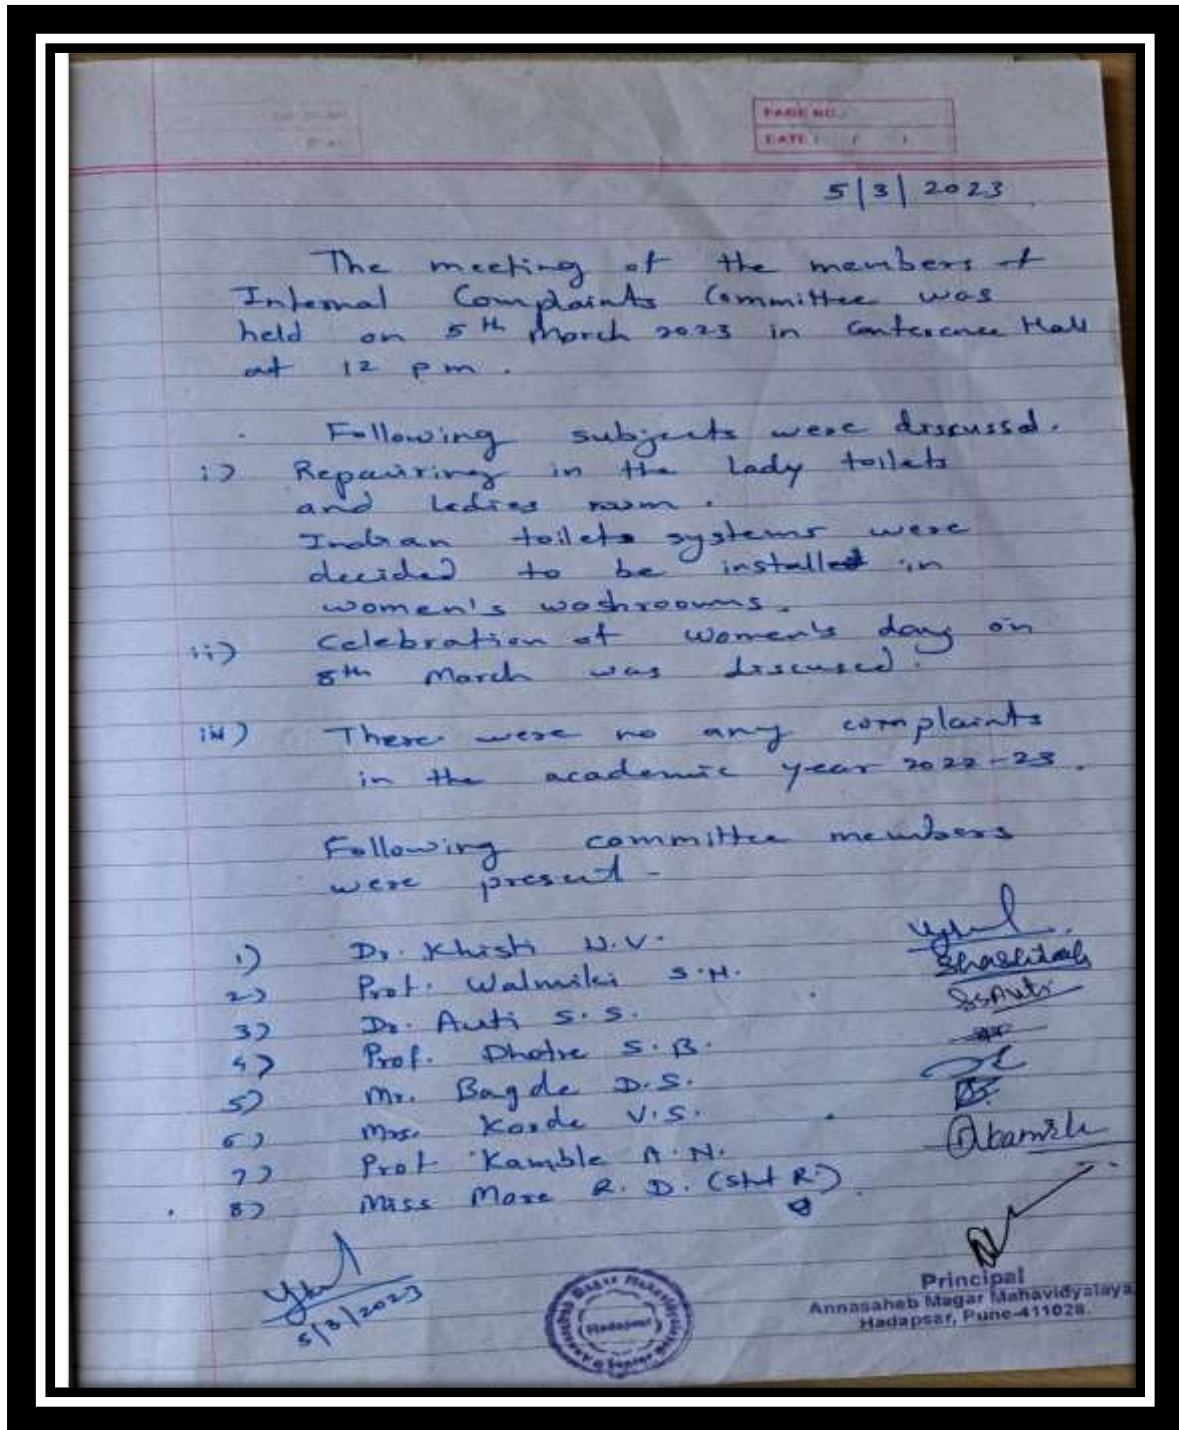 PAGE NO.
DATE: / /
5|3|2023
The meeting of the members of
Internal Complaints Committee was
held on 5th March 2023 in Conference Hall
at 12 pm.
Following subjects were discussd.
i) Repairing in the lady toilets
and ledies room.
Indian toilets systems were
decided to be installed in
women's washrooms.
ii) Celebration of women's day on
8th March was discused.
iii) There were no any complaints
in the academic year 2022-23.
Following committee members
were present -
1) Dr. Khisti N.V.
2) Prof. Walmiki S.H.
3) Dr. Auti S.S. SSAuti
4) Prof. Dhotre S.B.
5) Mr. Bagde D.S.
6) Mrs. Korde V.S.
7) Prof. Kamble A.N.
8) Miss More R.D. (Std R.)
5|3|2023
Annasaheb Magar Mahavidyalaya
Hadapsar
Principal
Annasaheb Magar Mahavidyalaya,
Hadapsar, Pune-411028.